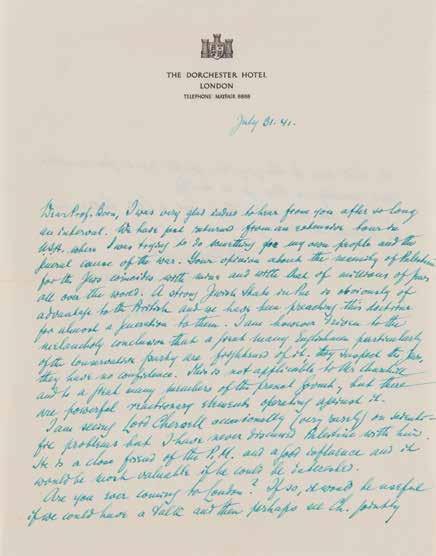 THE DORCHESTER HOTEL
LONDON
TELEPHONE MAYFAIR 8888
July 31. 41.
Dear Prof. Born, I was very glad indeed to hear from you after so long
an interval. We have just returned from an extensive tour in
USA. where I was trying to do something for my own people and the
general cause of the war. Your opinion about the necessity of Palestine
for the Jews coincides with mine and with that of millions of Jews
all over the world. A strong Jewish State in is obviously of
advantage to the British and we have been preaching this doctrine
for almost a generation to them. I am however driven to the
melancholy conclusion that a great many Englishmen particularly
of the conservative party are of it. They suspect the Jews,
they have no confidence. This is not applicable to Mr Churchill
and to a great many members of the present Govmt, but there
are powerful reactionary elements operating against it.
I am seeing Lord Cherwell occasionally (very rarely) on scienti-
fic problems but I have never discussed Palestine with him.
He is a close friend of the P.M. and a good influence and it
would be most valuable if he could be interested.
Are you ever coming to London? If so, it would be useful
if we could have a talk and then perhaps see Ch. jointly